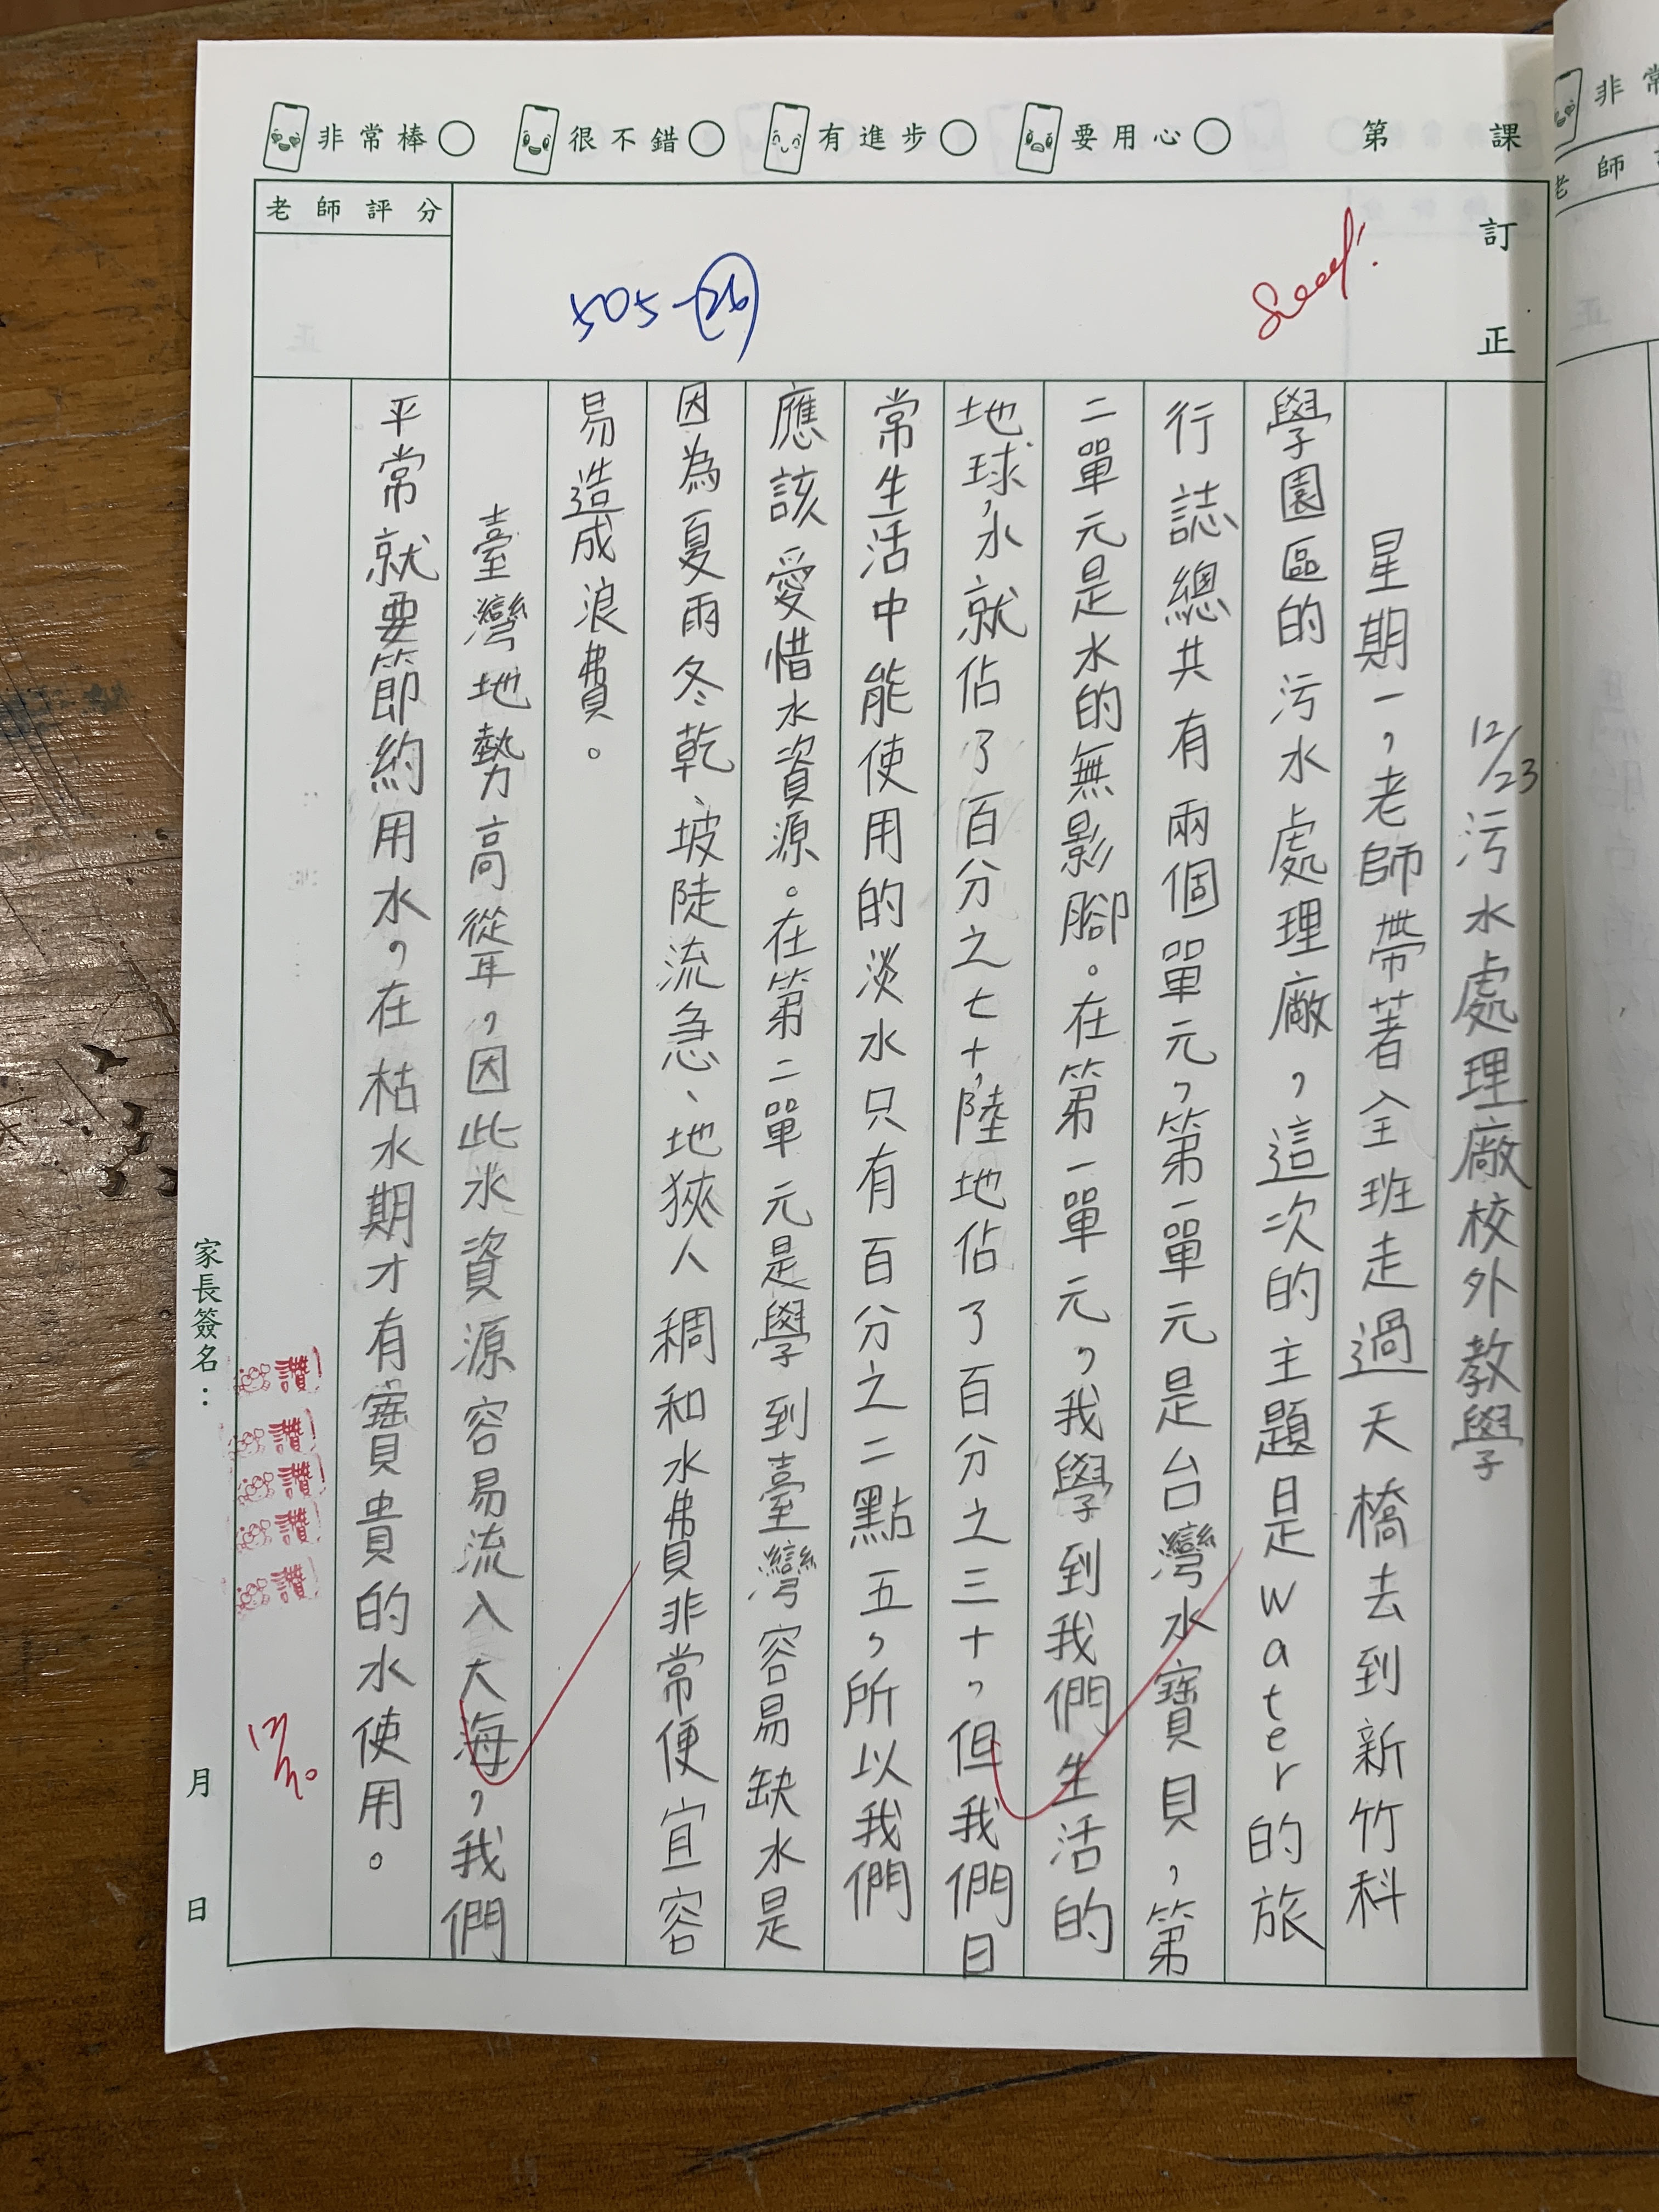 非常棒 很不錯 有進步 要用心 第 課
老師評分
訂正
505-26
12/23污水處理廠校外教學
星期一，老師帶著全班走過天橋去到新竹科
學園區的污水處理廠，這次的主題是water的旅
行誌總共有兩個單元，第一單元是台灣水寶貝，第
二單元是水的無影腳。在第一單元，我學到我們生活的
地球，水就佔了百分之七十，陸地佔了百分之三十，但我們日
常生活中能使用的淡水只有百分之二點五，所以我們
應該愛惜水資源。在第二單元是學到臺灣容易缺水是
因為夏雨冬乾、坡陡流急、地狹人稠和水費非常便宜容
易造成浪費。
臺灣地勢高從年，因此水資源容易流入大海，我們
平常就要節約用水，在枯水期才有寶貴的水使用。
讚!
讚!
讚!
讚!
讚!
12/30
家長簽名：
月 日
非常
老師